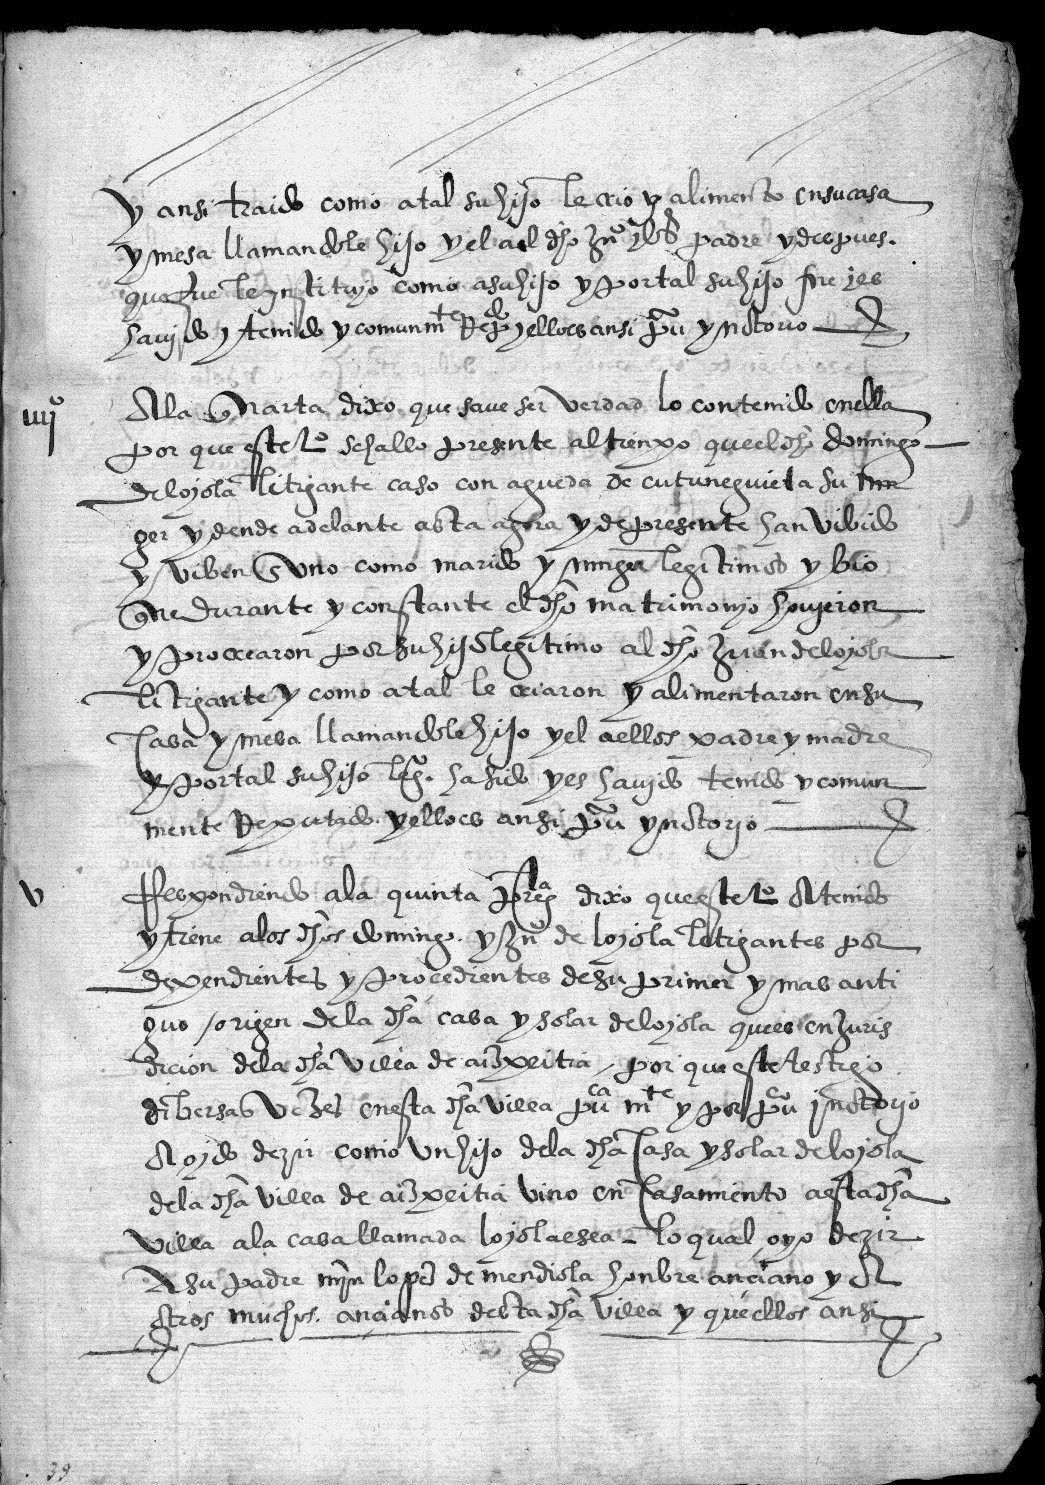 y ansi traido como a tal su hijo le crio y alimento en su casa
y mesa llamandole hijo y el al dho Juº padre y despues
que fue le ynstituyo como a su hijo y por tal su hijo fue y es
havido y tenido y comunmte Repdo y ello es ansi puco y notorio
iiijº A la quarta dixo que save ser verdad lo contenido en ella
por que este tº se hallo presente al tienpo que el dho domingo
de loyola litigante caso con agueda de cutuneguieta su mu
ger y dende adelante asta agora y de presente han vibido
y viben en uno como marido y muger legitimos y bio
que durante y constante el dho matrimonyo houieron
y procrearon por su hijo legitimo al dho Juan de loyola
litigante y como a tal le criaron y alimentaron en su
casa y mesa llamandole hijo y el a ellos padre y madre
y por tal su hijo legº ha sido y es havido tenido y comun
mente Reputado y ello es ansi puco y notorio
v Respondiendo a la quinta prega dixo que este tº A tenido
y tiene a los dhos domingo y Juº de loyola litigantes por
dependientes y procedientes de su primer y mas anti
guo origen de la dha casa y solar de loyola que es en Juris
dicion de la dha villa de aizpeitia por que este testigo
dibersas vezes en esta dha villa puca mte y por puco y notorio
A oydo dezir como un hijo de la dha casa y solar de loyola
de la dha villa de aizpeitia vino en casamiento a esta dha
villa a la casa llamada loyolaesea lo qual oyo dezir
A su padre mrn lopez de mendiola honbre anciano y A
otros muchos ancianos desta dha villa y que ellos ansi
39